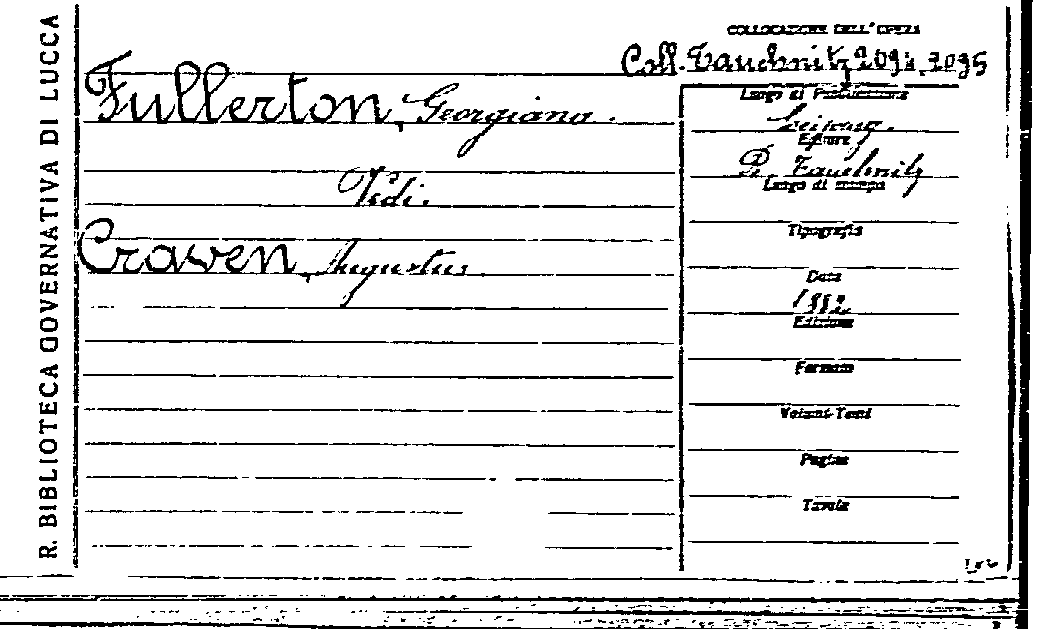 R. BIBLIOTECA GOVERNATIVA DI LUCCA
COLLOCAZIONE DELL'OPERA
Coll. Tauchnitz 2094, 2095
Fullerton, Georgiana.
Vedi.
Craven, Augustus.
Luogo di Pubblicazione
Leipzig.
Editore
B. Tauchnitz
Luogo di stampa
Tipografia
Data
1882
Edizione
Formato
Volumi-Tomi
Pagine
Tavole